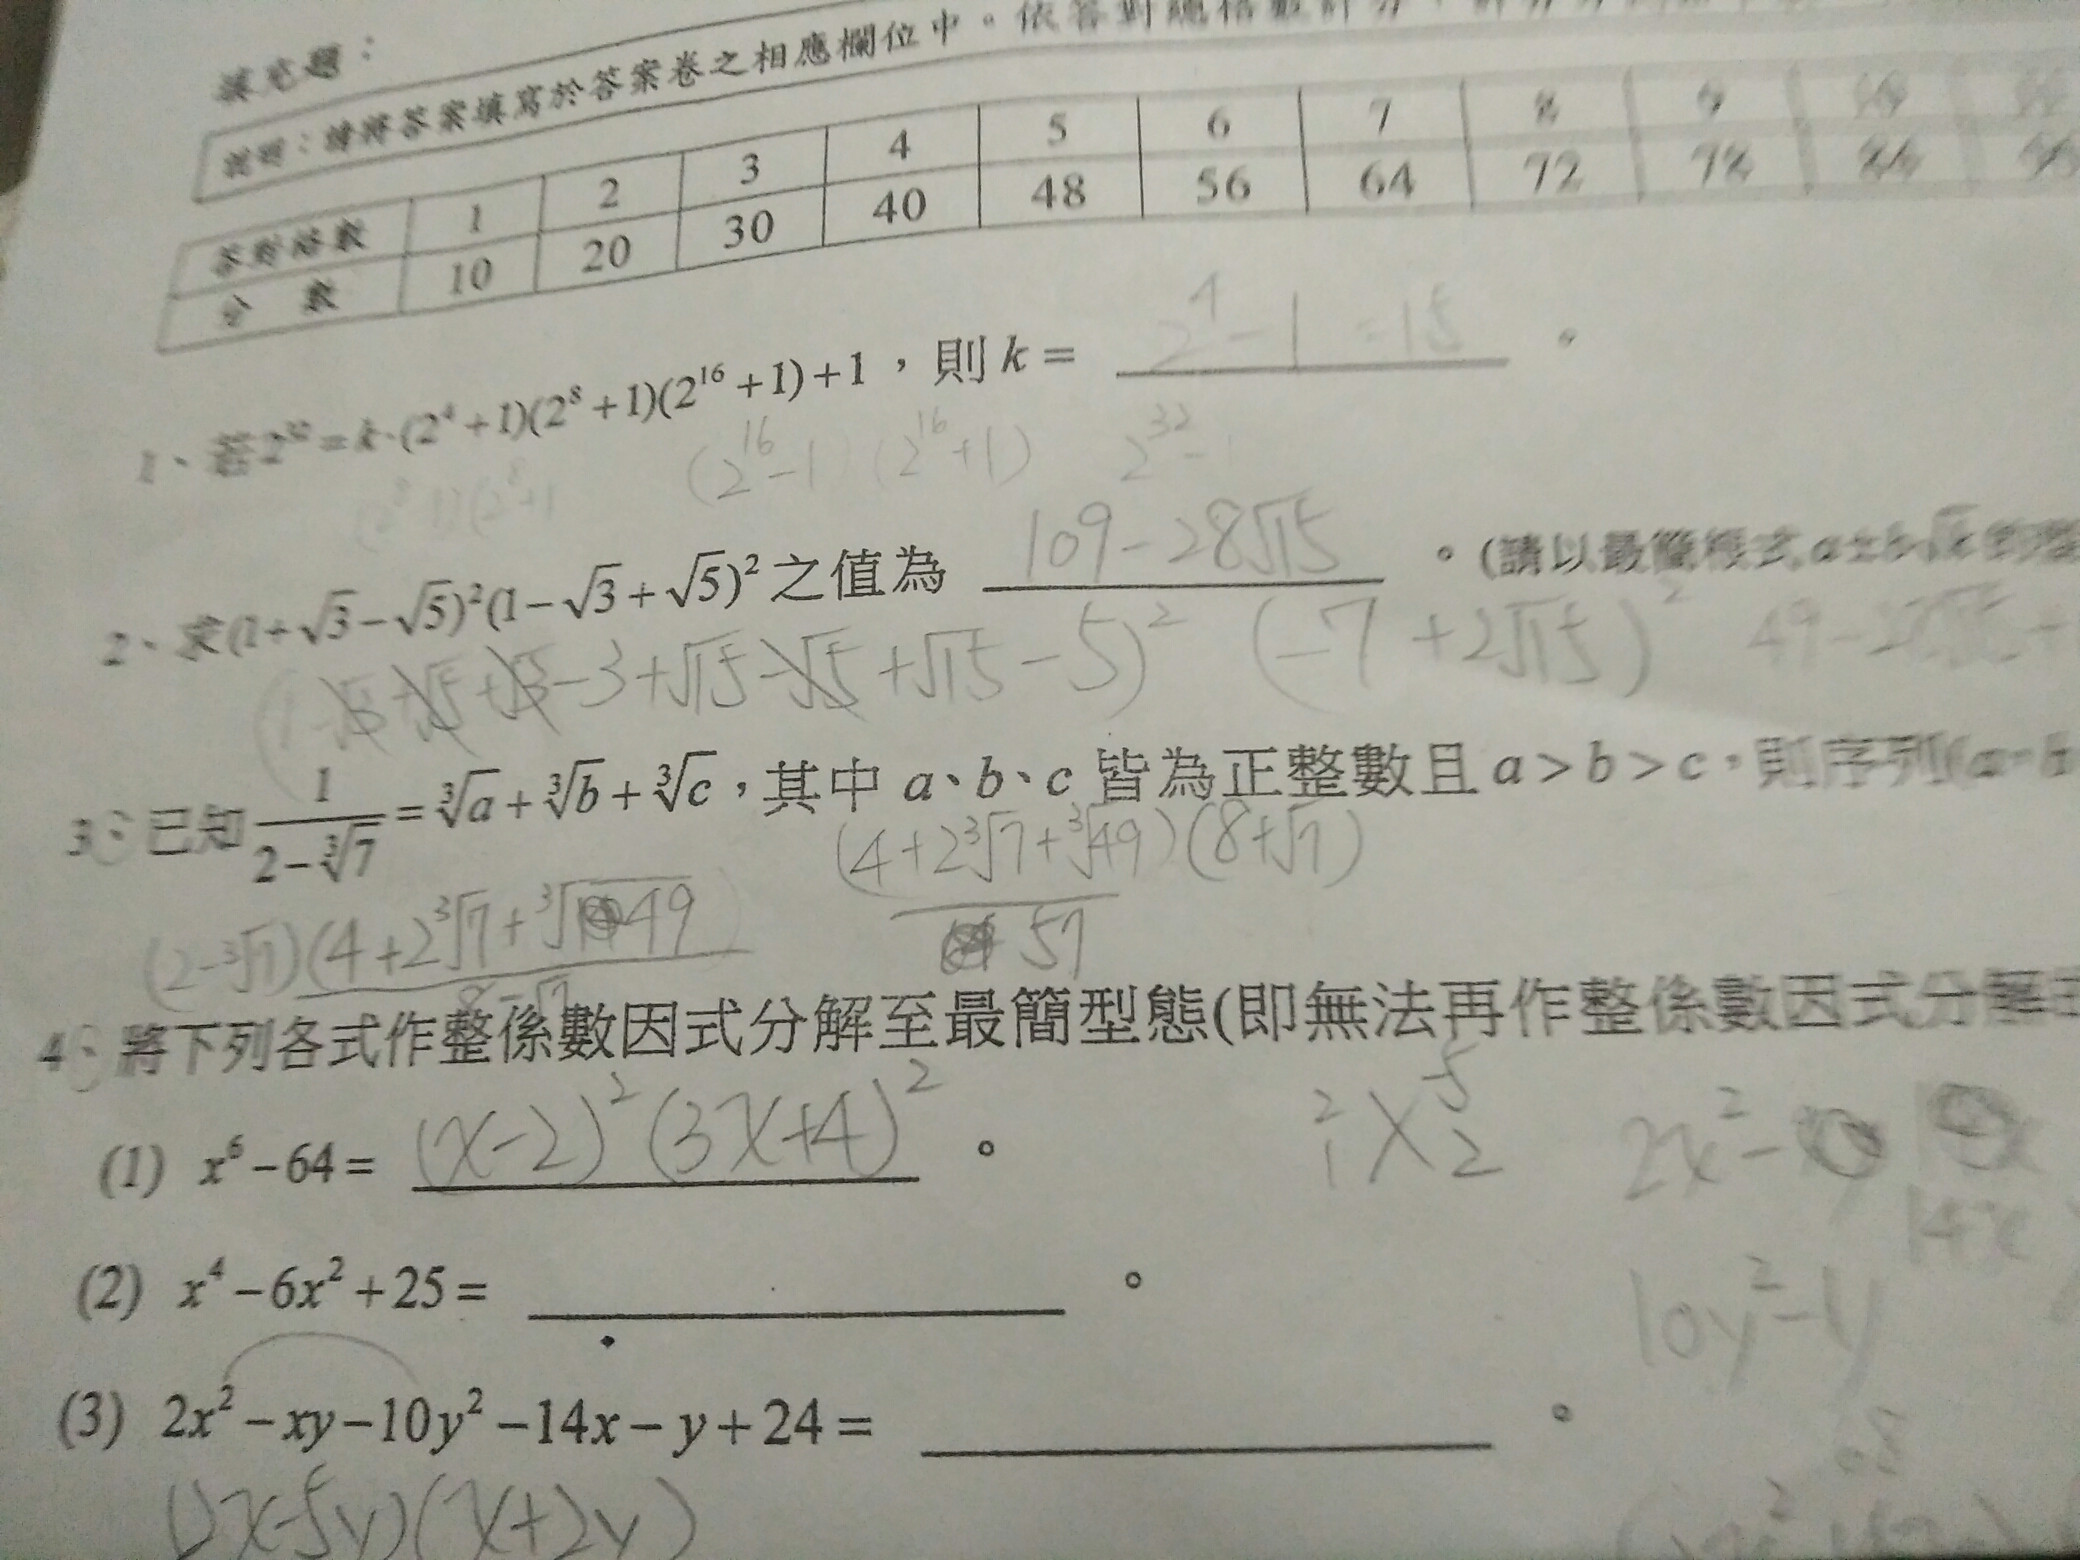 填充題：
說明：請將答案填寫於答案卷之相應欄位中。依答對總格數計分，
答對格數 1 2 3 4 5 6 7 8 9 10
分 數 10 20 30 40 48 56 64 72 78 84 90
1、若2³²=k·(2⁴+1)(2⁸+1)(2¹⁶+1)+1，則k= 2⁴-1=15 。
(2¹⁶-1)(2¹⁶+1) 2³²-
(2⁸-1)(2⁸+1
2、求(1+√3-√5)²(1-√3+√5)²之值為 109-28√15 。(請以最簡根式a±b√
(1-√3+√5+√3-3+√15-√5+√15-5)² (-7+2√15)² 49-28√15+
3、已知 1/(2-∛7)=∛a+∛b+∛c，其中 a、b、c 皆為正整數且a>b>c，則序列(a、b
(4+2∛7+∛49)(8+√7)
57
(2-∛7)(4+2∛7+∛49)
8-√7
4、將下列各式作整係數因式分解至最簡型態(即無法再作整係數因式分解
(1) x⁶-64= (x-2)²(3x+4)² 。
2 -5
1 X 2
2x²-
14x
(2) x⁴-6x²+25= 。
10y²-y
(3) 2x²-xy-10y²-14x-y+24= 。
(2x-5y)(x+2y)